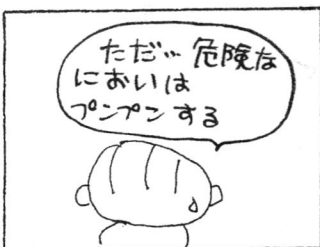 ただ… 危険な
においは
プンプンする